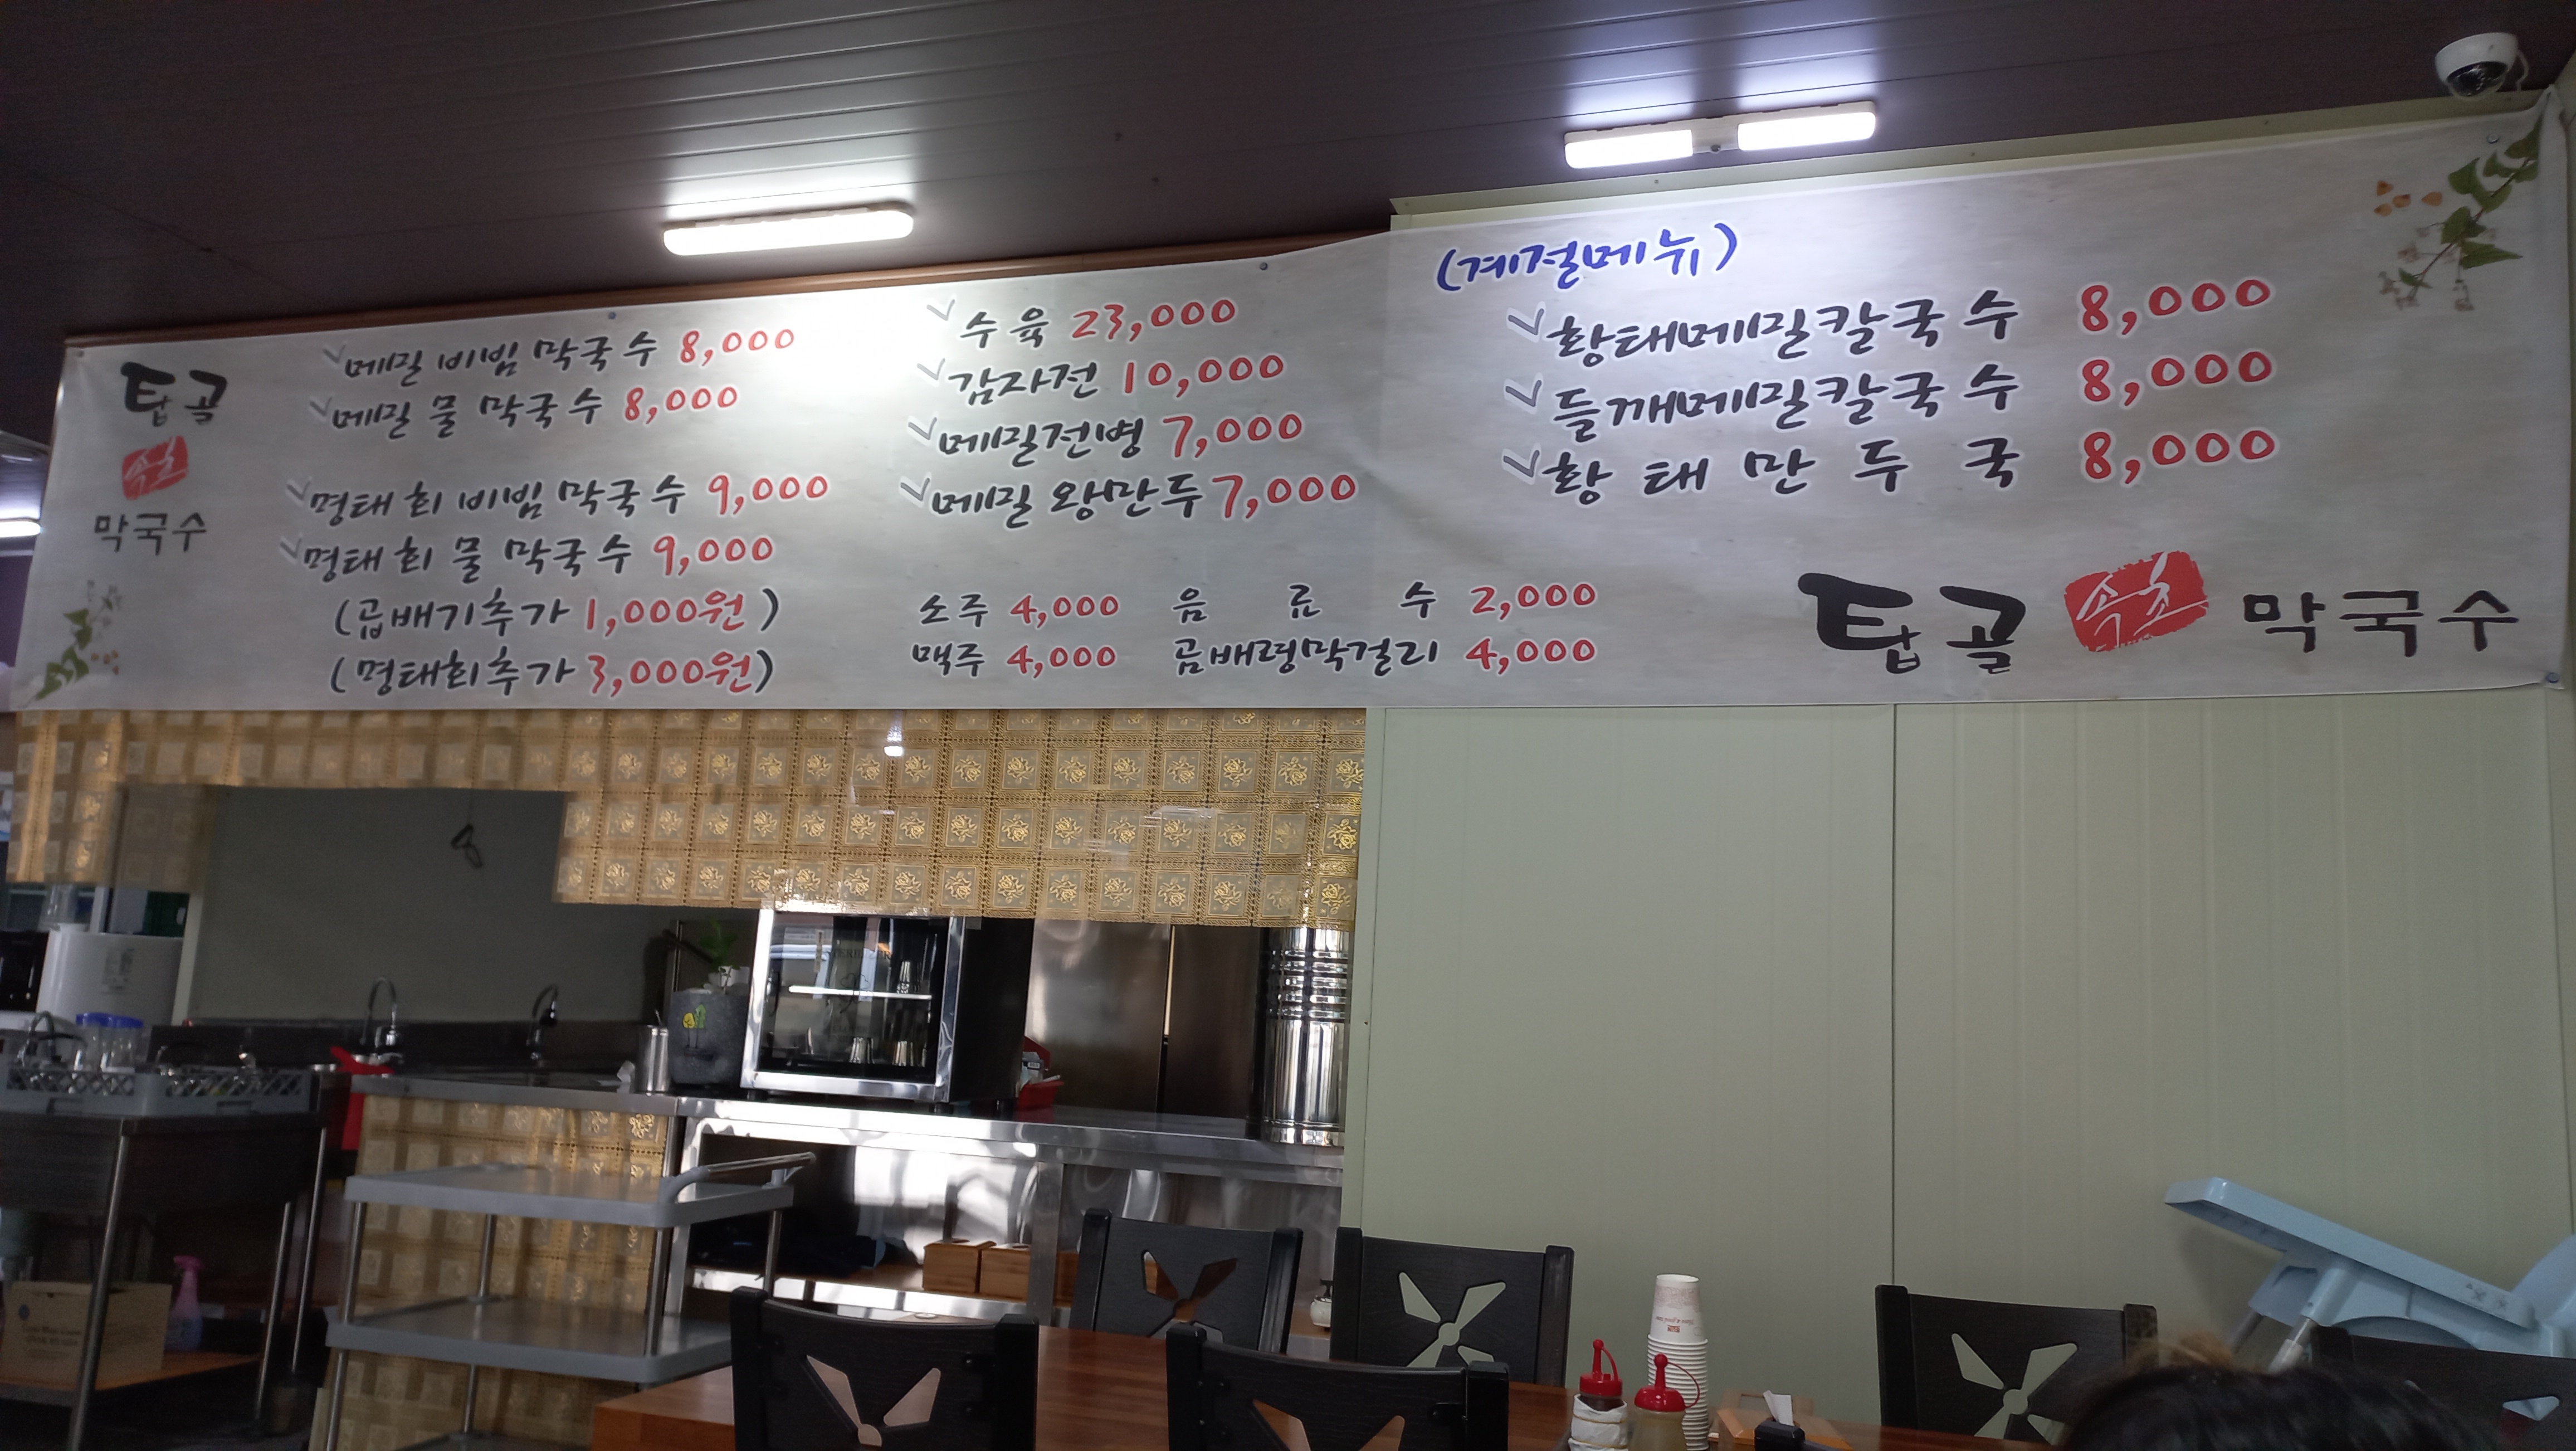 탑골
속초
막국수
메밀 비빔 막국수 8,000
메밀 물 막국수 8,000
명태회 비빔 막국수 9,000
명태회 물 막국수 9,000
(곱배기추가 1,000원)
(명태회추가 3,000원)
수육 23,000
감자전 10,000
메밀전병 7,000
메밀 왕만두 7,000
소주 4,000 음 료 수 2,000
맥주 4,000 곰배령막걸리 4,000
(계절메뉴)
황태메밀칼국수 8,000
들깨메밀칼국수 8,000
황 태 만 두 국 8,000
탑골 속초 막국수